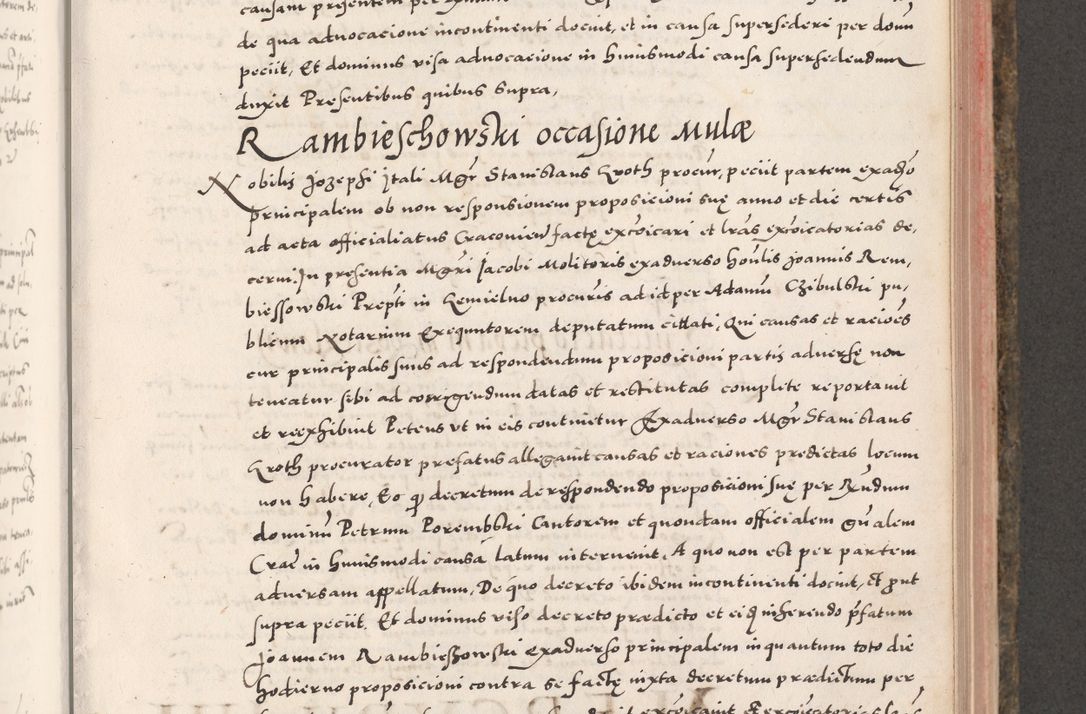 causam presentem per
de qua advocacione incontinenti docuit, et in causa supersederi per domi
peciit, Et dominus visa advocacione in huiusmodi causa supersedendum
duxit Presentibus quibus supra,
Rambieschowski occasione Mulæ
Nobilis Jozephi Itali Mgr Stanislaus Kroth procur, peciit partem exadso
principalem ob non responsionem proposicioni suę anno et die certis
ad acta officialiatus Cracovien factę exco͂icari et lr͂as exco͂icatorias de,
cerni, In presentia Mgr͂i Jacobi Molitoris exadverso hon͂lis Joannis Rem,
biessowski Prep͂ti in Kemielno procur͂is ad id per Adamu͂ Czibulski pu,
blicum Notarium Exequutorem deputatum citati, Qui causas et racio͂es
cur principalis suus ad respondendum proposicioni partis adversę non
teneatur sibi ad corrigendum datas et restitutas complite reportavit
et reexhibuit Petens ut in eis continetur Exadverso Mgr Stanislaus
Kroth procurator prefatus allegavit causas et raciones predictas locum
non habere, Eo q͂ decretum de respondendo proposicioni suę per Rn͂dum
dominu͂ Petrum Porembski Cantorem et quondam officialem gn͂alem
Crac͂ in huiusmodi causa latum intervenit, A quo non est per partem
adversam appellatum, De quo decreto ibidem incontinenti docuit, Et prout
supra peciit, Et dominus viso decreto prædicto et eidem inherendo p͂fatum
Joannem Rambieszowski Exadverso principalem in quantum toto die
hodierno proposicioni contra se factę iuxta decretum prædictum per
exco͂icavit et exco͂icatorias